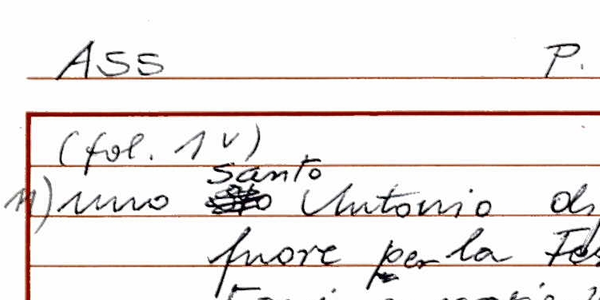 ASS P.
(fol. 1v)
santo
11) uno Antonio di
fuore per la Fes